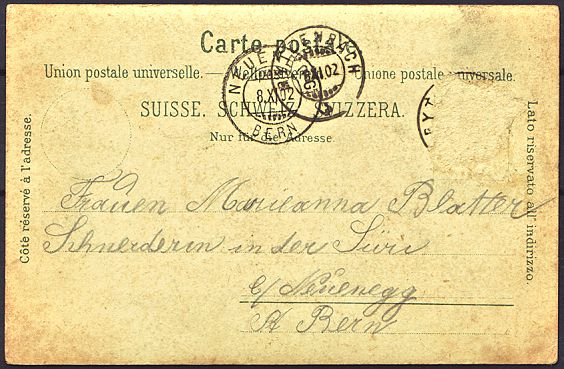 Carte postale.
Union postale universelle. — Weltpostverein. — Unione postale universale.
SUISSE. SCHWEIZ. SVIZZERA.
Nur für die Adresse.
Côté réservé à l'adresse.
Lato riservato all' indirizzo.
NEUENEGG
8.XI.02
BERN
XI.02
Frauen Marieanna Blatter
Schneiderin in der Süri
b/ Neuenegg
Kt Bern